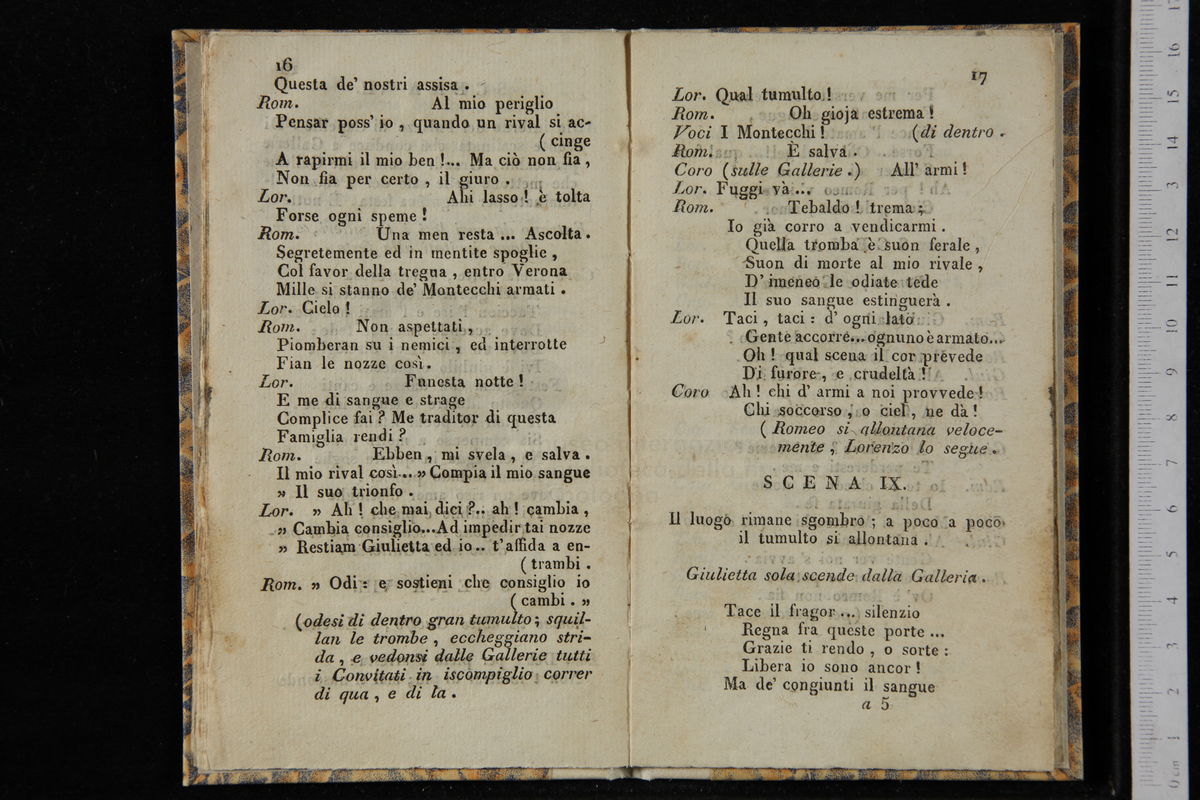 16
Questa de' nostri assisa .
Rom. Al mio periglio
Pensar poss' io , quando un rival si ac-
( cinge
A rapirmi il mio ben !... Ma ciò non fia ,
Non fia per certo , il giuro .
Lor. Ahi lasso ! è tolta
Forse ogni speme !
Rom. Una men resta ... Ascolta .
Segretemente ed in mentite spoglie ,
Col favor della tregua , entro Verona
Mille si stanno de' Montecchi armati .
Lor. Cielo !
Rom. Non aspettati ,
Piomberan su i nemici , ed interrotte
Fian le nozze così .
Lor. Funesta notte !
E me di sangue e strage
Complice fai ? Me traditor di questa
Famiglia rendi ?
Rom. Ebben , mi svela , e salva .
Il mio rival così ... » Compia il mio sangue
» Il suo trionfo .
Lor. » Ah ! che mai dici ?.. ah ! cambia ,
» Cambia consiglio...Ad impedir tai nozze
» Restiam Giulietta ed io .. t'affida a en-
( trambi .
Rom. » Odi : e sostieni che consiglio io
( cambi . »
(odesi di dentro gran tumulto ; squil-
lan le trombe , eccheggiano stri-
da , e vedonsi dalle Gallerie tutti
i Convitati in iscompiglio correr
di qua , e di la .
17
Lor. Qual tumulto !
Rom. Oh gioja estrema !
Voci I Montecchi ! (di dentro .
Rom. È salva .
Coro (sulle Gallerie .) All' armi !
Lor. Fuggi va ...
Rom. Tebaldo ! trema ;
Io già corro a vendicarmi .
Quella tromba è suon ferale ,
Suon di morte al mio rivale ,
D' imeneo le odiate tede
Il suo sangue estinguerà .
Lor. Taci , taci : d' ogni lato
Gente accorre... ognuno è armato...
Oh ! qual scena il cor prevede
Di furore , e crudeltà !
Coro Ah ! chi d' armi a noi provvede !
Chi soccorso , o ciel , ne dà !
( Romeo si allontana veloce-
mente , Lorenzo lo segue .
SCENA IX.
Il luogo rimane sgombro ; a poco a poco
il tumulto si allontana .
Giulietta sola scende dalla Galleria .
Tace il fragor ... silenzio
Regna fra queste porte ...
Grazie ti rendo , o sorte :
Libera io sono ancor !
Ma de' congiunti il sangue
a 5